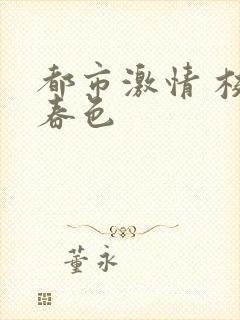 都市激情 校
春色
董永